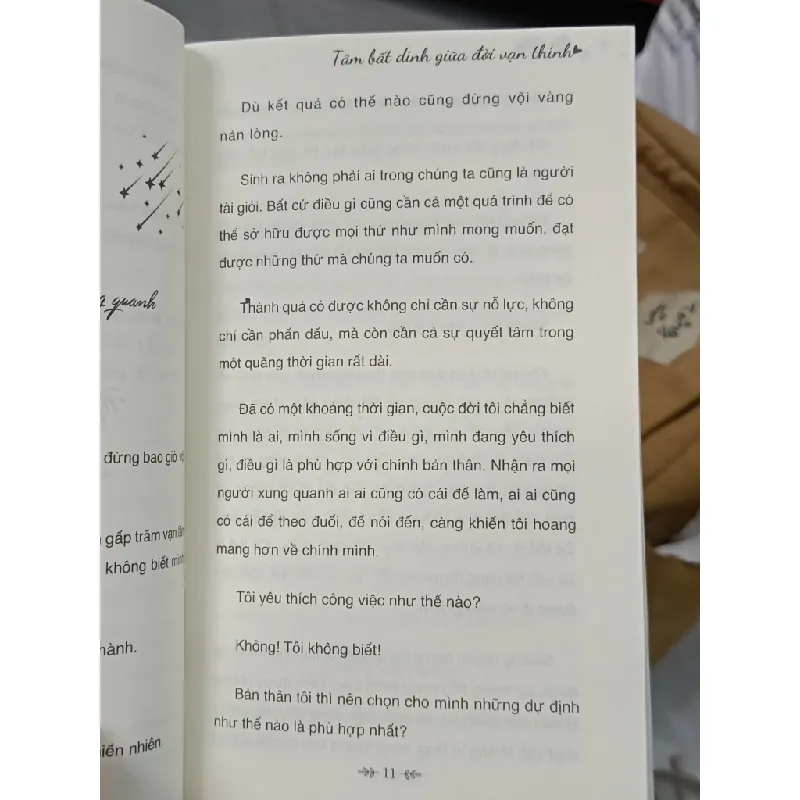 quanh
đừng bao giờ
gấp trăm vạn
không biết
hành.
hiên nhiên
Tâm bất định giữa đời vạn thính
Dù kết quả có thế nào cũng đừng vội vàng
nản lòng.
Sinh ra không phải ai trong chúng ta cũng là người
tài giỏi. Bất cứ điều gì cũng cần cả một quá trình để có
thể sở hữu được mọi thứ như mình mong muốn, đạt
được những thứ mà chúng ta muốn có.
Thành quả có được không chỉ cần sự nỗ lực, không
chỉ cần phấn đấu, mà còn cần cả sự quyết tâm trong
một quãng thời gian rất dài.
Đã có một khoảng thời gian, cuộc đời tôi chẳng biết
mình là ai, mình sống vì điều gì, mình đang yêu thích
gì, điều gì là phù hợp với chính bản thân. Nhận ra mọi
người xung quanh ai ai cũng có cái để làm, ai ai cũng
có cái để theo đuổi, để nói đến, càng khiến tôi hoang
mang hơn về chính mình.
Tôi yêu thích công việc như thế nào?
Không! Tôi không biết!
Bản thân tôi thì nên chọn cho mình những dự định
như thế nào là phù hợp nhất?
11